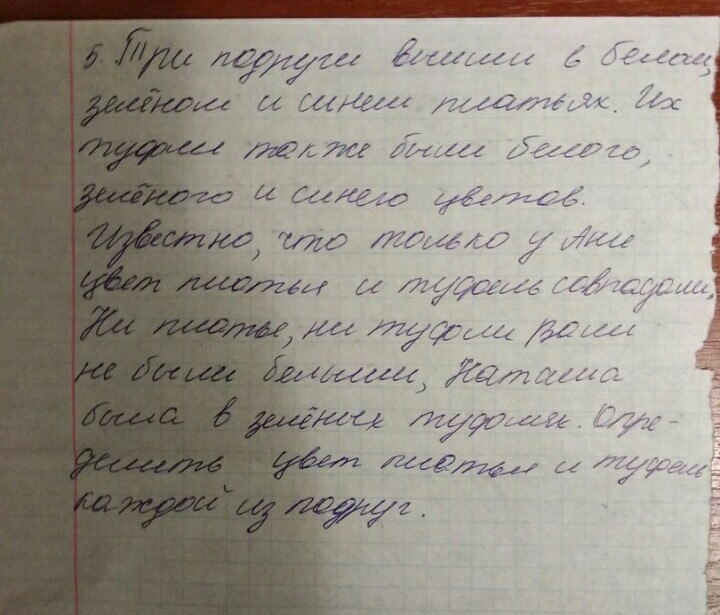 5. Три подруги вышли в белом,
зелёном и синем платьях. Их
туфли также были белого,
зелёного и синего цветов.
Известно, что только у Ани
цвет платья и туфель совпадали.
Ни платье, ни туфли Вали
не были белыми, Наташа
была в зелёных туфлях. Опре-
делить цвет платья и туфель
каждой из подруг.